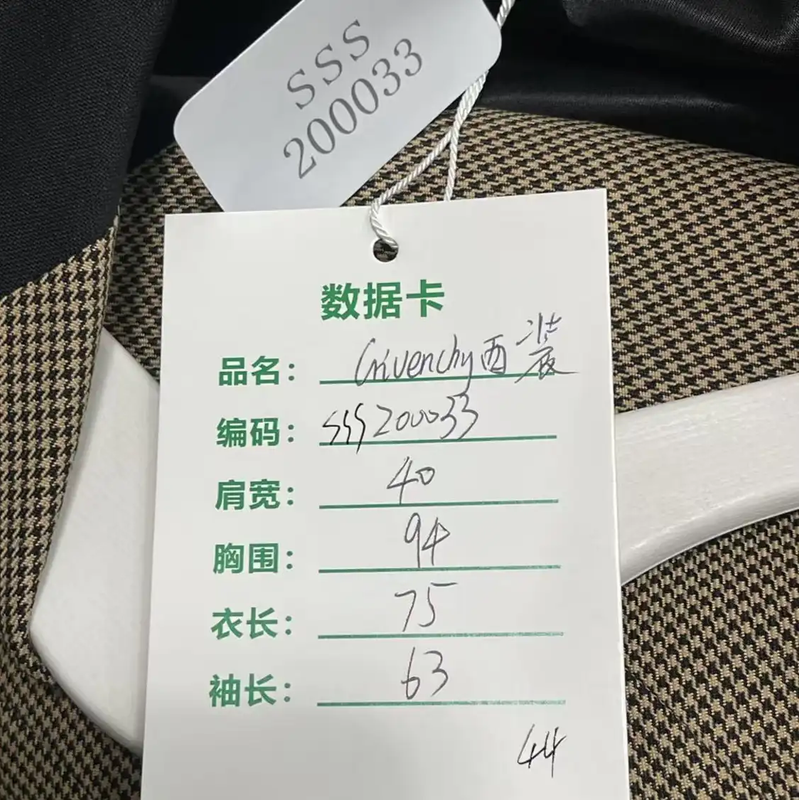 SSS
200033
数据卡
品名： Givenchy西装
编码： SSS200033
肩宽： 40
胸围： 94
衣长： 75
袖长： 63
44